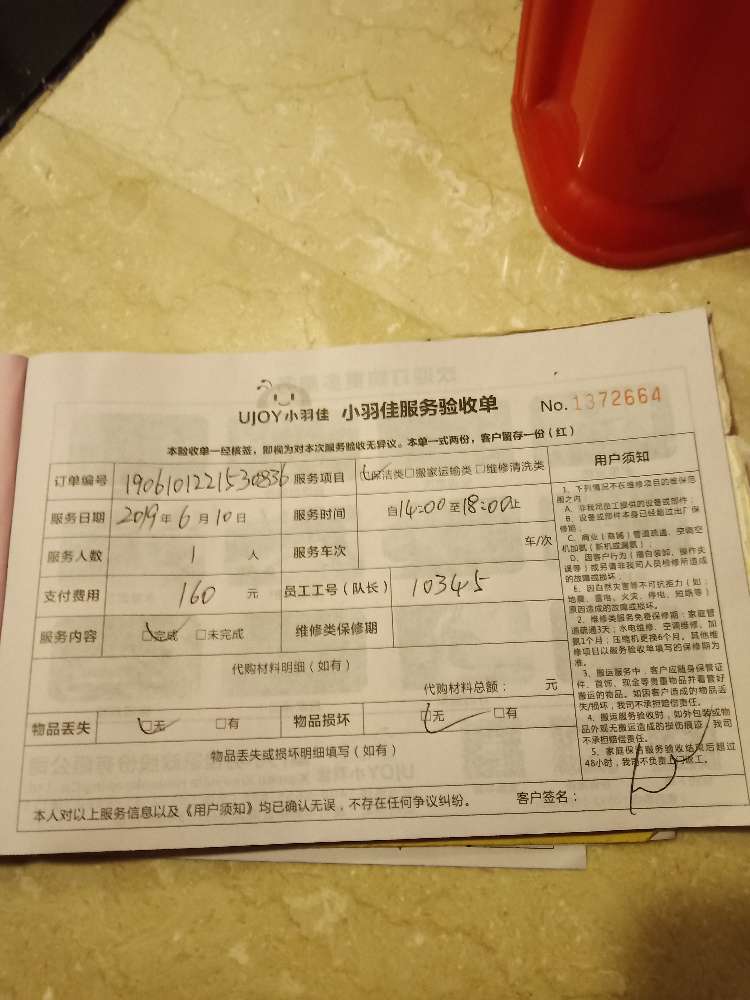 UJOY小羽佳 小羽佳服务验收单 No. 1372664
本验收单一经核签，即视为对本次服务验收无异议。本单一式两份，客户留存一份（红）
订单编号 1906101221530836 服务项目 □保洁类□搬家运输类□维修清洗类
服务日期 2019年6月10日 服务时间 自14:00至18:00止
服务人数 1 人 服务车次 车/次
支付费用 160 元 员工工号（队长） 10345
服务内容 □完成 □未完成 维修类保修期
代购材料明细（如有）
代购材料总额： 元
物品丢失 □无 □有 物品损坏 □无 □有
物品丢失或损坏明细填写（如有）
本人对以上服务信息以及《用户须知》均已确认无误，不存在任何争议纠纷。 客户签名：
用户须知
1、下列情况不在维修项目的维保范
围之内：
A、非我司员工提供的设备或部件；
B、设备或部件本身已经超过出厂保
修期；
C、商业（商铺）管道疏通、空调空
机加氨（新机或漏氨）
D、因客户行为（擅自装卸、操作失
误等）或另请非我司人员检修所造成
的故障或损坏；
E、因自然灾害等不可抗拒力（如：
地震、雷电、火灾、停电、短路等）
原因造成的故障或损坏。
2、维修类服务免费保修期：家庭管
道疏通3天；水电维修、空调维修、加
氨1个月；压缩机更换6个月。其他维
修项目以服务验收单填写的保修期为
准。
3、搬运服务中，客户应随身保管证
件、首饰、现金等贵重物品并看管好
搬运的物品。如因客户造成的物品丢
失/损坏，我司不承担赔偿责任。
4、搬运服务验收时，如外包装或物
品外观无搬运造成的损伤痕迹，我司
不承担赔偿责任。
5、家庭保洁服务验收结束后超过
48小时，我司不负责上门返工。